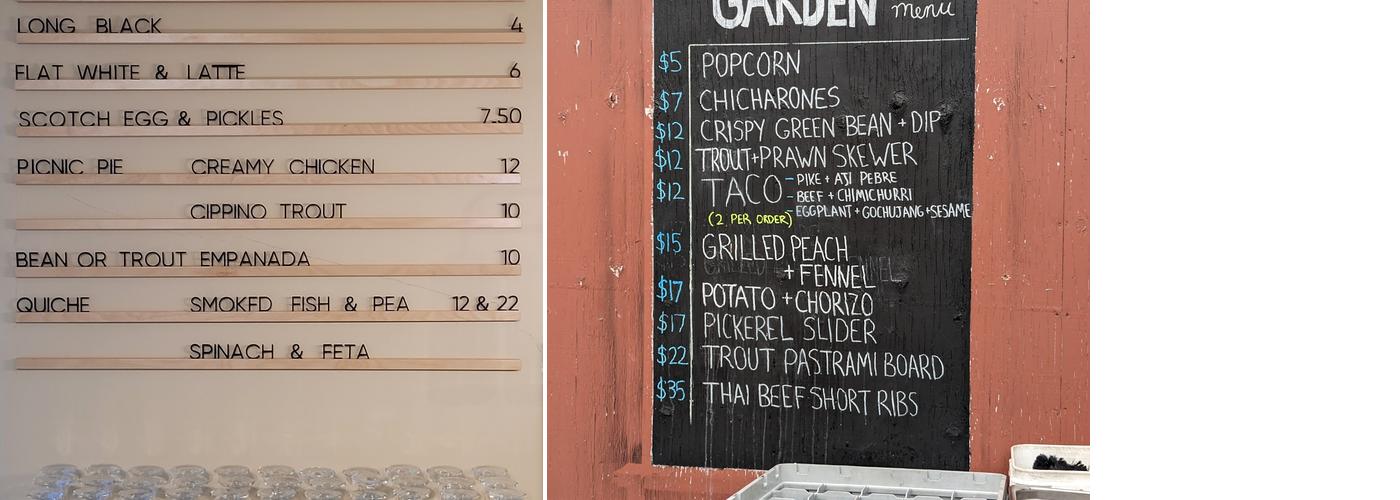 LONG BLACK 4
FLAT WHITE & LATTE 6
SCOTCH EGG & PICKLES 7.50
PICNIC PIE CREAMY CHICKEN 12
CIPPINO TROUT 10
BEAN OR TROUT EMPANADA 10
QUICHE SMOKED FISH & PEA 12 & 22
SPINACH & FETA
GARDEN menu
$5 POPCORN
$7 CHICHARONES
$12 CRISPY GREEN BEAN + DIP
$12 TROUT + PRAWN SKEWER
$12 TACO - PIKE + AJI PEBRE
- BEEF + CHIMICHURRI
- EGGPLANT + GOCHUJANG + SESAME
(2 PER ORDER)
$15 GRILLED PEACH
+ FENNEL
$17 POTATO + CHORIZO
$17 PICKEREL SLIDER
$22 TROUT PASTRAMI BOARD
$35 THAI BEEF SHORT RIBS